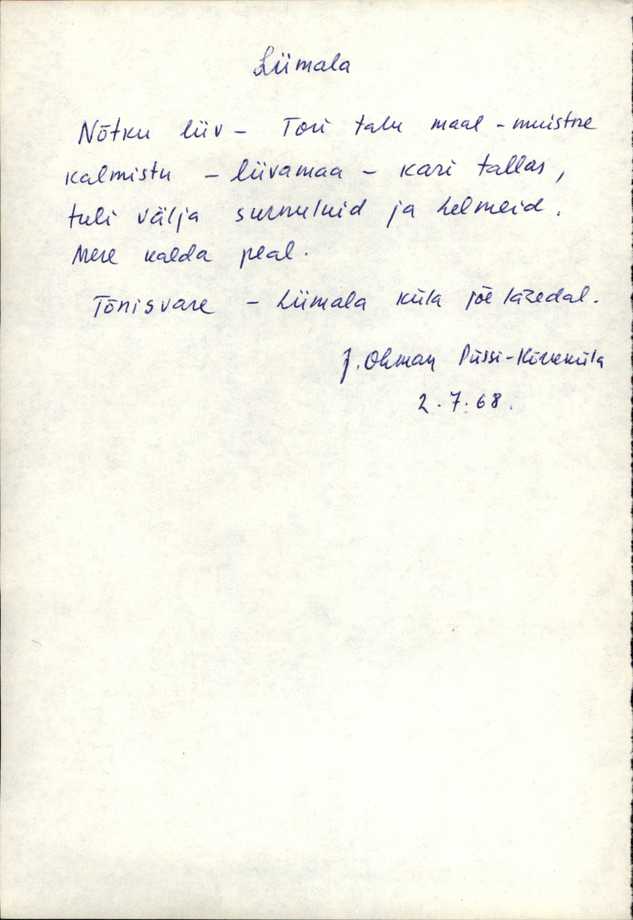 Liimala
Nõtku liiv – Tori talu maal – muistne
kalmistu – liivamaa – kari tallas,
tuli välja surnuluid ja helmeid.
Mere kalda peal.
Tõnisvare – Liimala küla jõe läzedal.
J. Ohman Püssi-Kõrveküla
2.7.68.